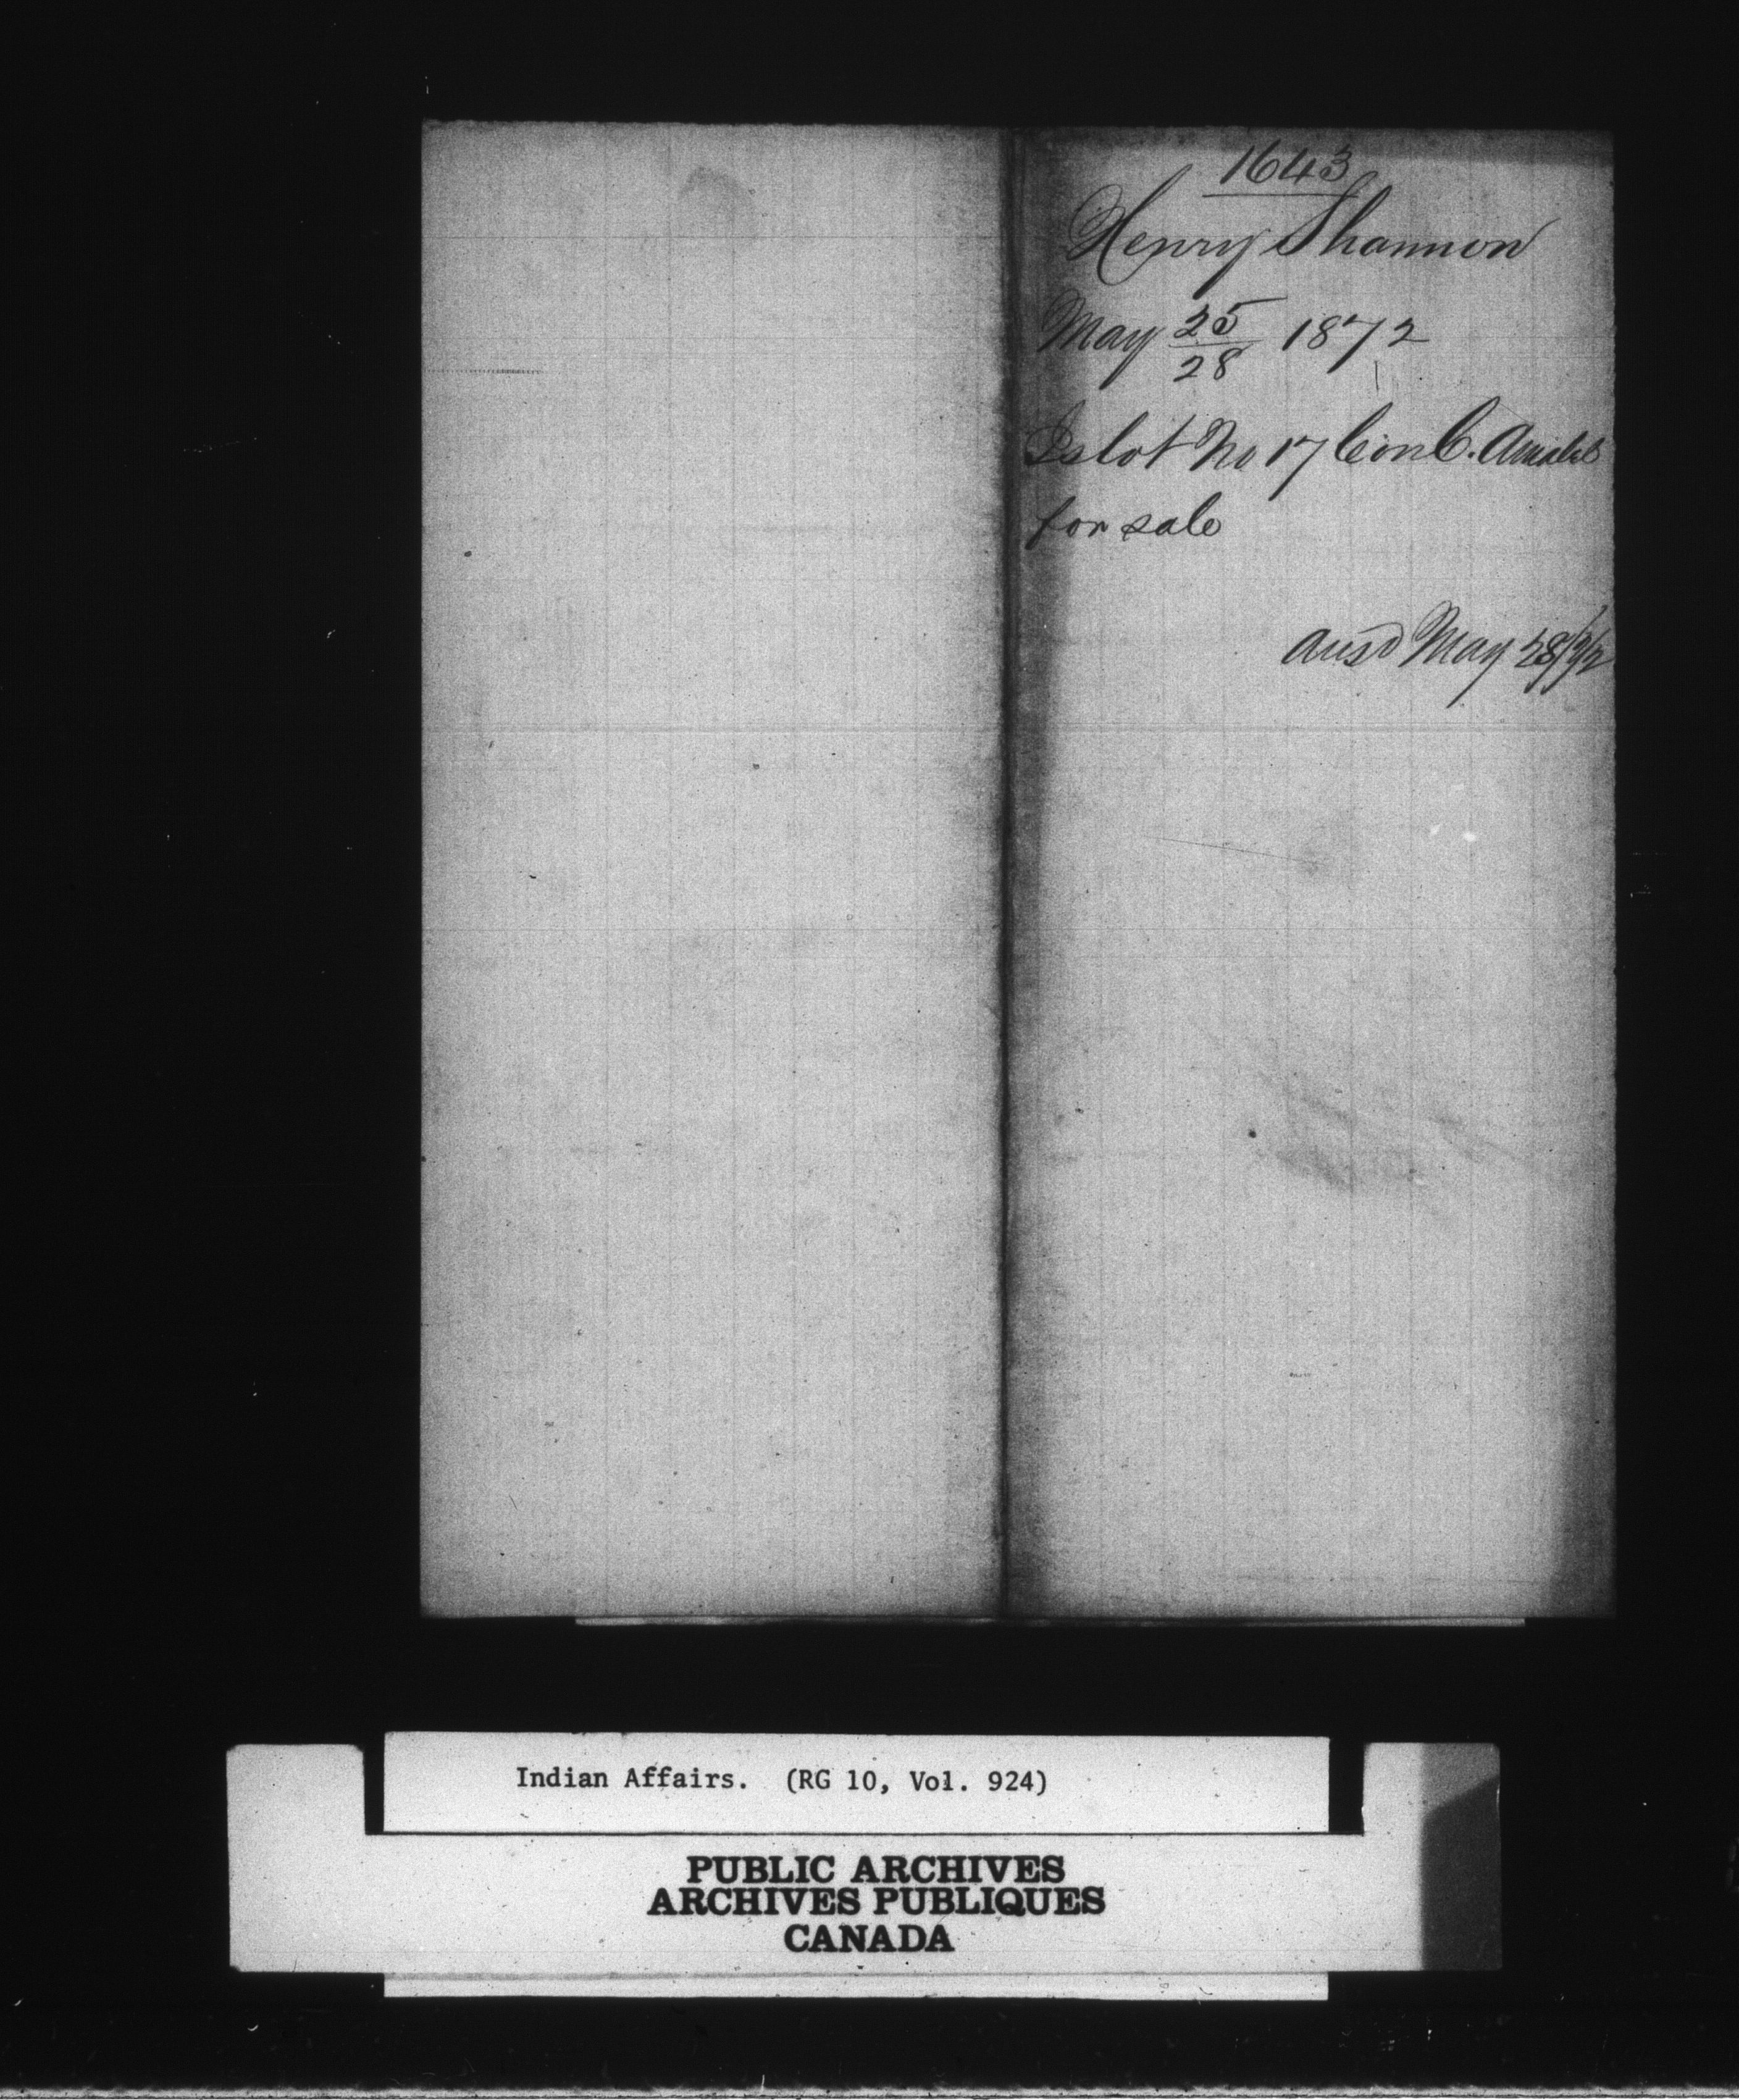 1643
Henry Shannon
May 25/28 1872
Is lot No 17 Con C. Amabel
for sale
Ansd May 28/72
Indian Affairs. (RG 10, Vol. 924)
PUBLIC ARCHIVES
ARCHIVES PUBLIQUES
CANADA